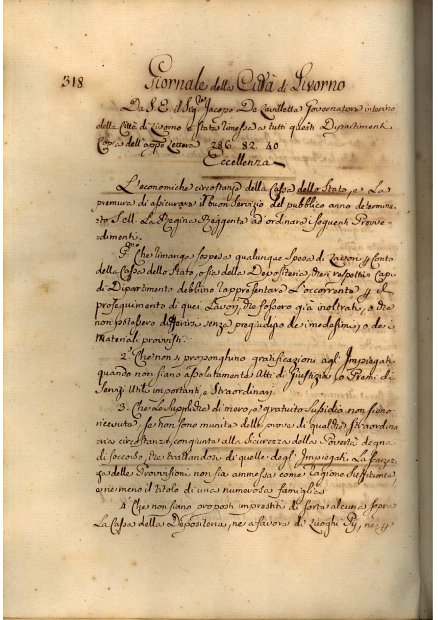 318 Giornale della Città di Livorno
Da S. E. il Sig.re Jacopo De Lavillette Governatore interino
della Città di Livorno è stata rimessa a tutti questi Dipartimenti
Copia dell'appo Lettera 286 82 40
Eccellenza
L'economiche circostanze della Cassa dello Stato, e La
premura di assicurare il buon servizio del pubblico anno determina-
to S. M. La Regina Reggente ad ordinare i seguenti Provve-
dimenti.
P.mo Che rimanga sospesa qualunque spesa di Lavori p Conto
della Cassa dello Stato, o sia della Depositeria, e i respettivi Capi
di Dipartimento debbino rappresentare L'occorrente p il
proseguimento di quei Lavori, che fossero già inoltrati, o che
non potessero differirsi senza pregiudizio dei medesimi, o dei
Materiali provvisti.
2° Che non si proponghino gratificazioni agli Impiegati
quando non siano assolutamente Atti di Giustizia, o Premi di
Servizi Utili importanti, e Straordinari.
3. Che Le Suppliche di nuovo, e gratuito Sussidio non sieno
ricevute, se non sono munite delle prove di qualche straordina
ria circostanza, congiunte alla Sicurezza della Povertà degna
di soccorso, che trattandosi di quelle degli Impiegati La scarsez-
za delle Provvisioni non sia ammessa come ragione Sufficiente,
e nemeno il titolo di una numerosa famiglia
4° Che non siano proposti imprestiti di sorta alcuna sopra
La Cassa della Depositeria, ne a favore di Luoghi Pij, ne p